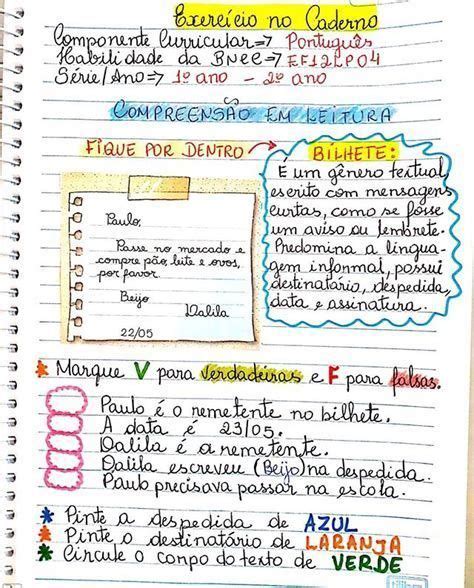 Exercício no Caderno
Componente Curricular=> Português
Habilidade da BNCC=> EF12LP04
Série/Ano=> 1º ano - 2º ano
COMPREENSÃO EM LEITURA
FIQUE POR DENTRO
BILHETE:
É um gênero textual,
escrito com mensagens
curtas, como se fosse
um aviso ou lembrete.
Predomina a lingua-
gem informal, possui
destinatário, despedida,
data e assinatura.
Paulo,
Passe no mercado e
compre pão, leite e ovos,
por favor.
Beijo
Dalila
22/05
* Marque V para verdadeiras e F para falsas.
Paulo é o remetente no bilhete.
A data é 23/05.
Dalila é a remetente.
Dalila escreveu (Beijo) na despedida.
Paulo precisava passar na escola.
* Pinte a despedida de AZUL
* Pinte o destinatário de LARANJA
* Circule o corpo do texto de VERDE